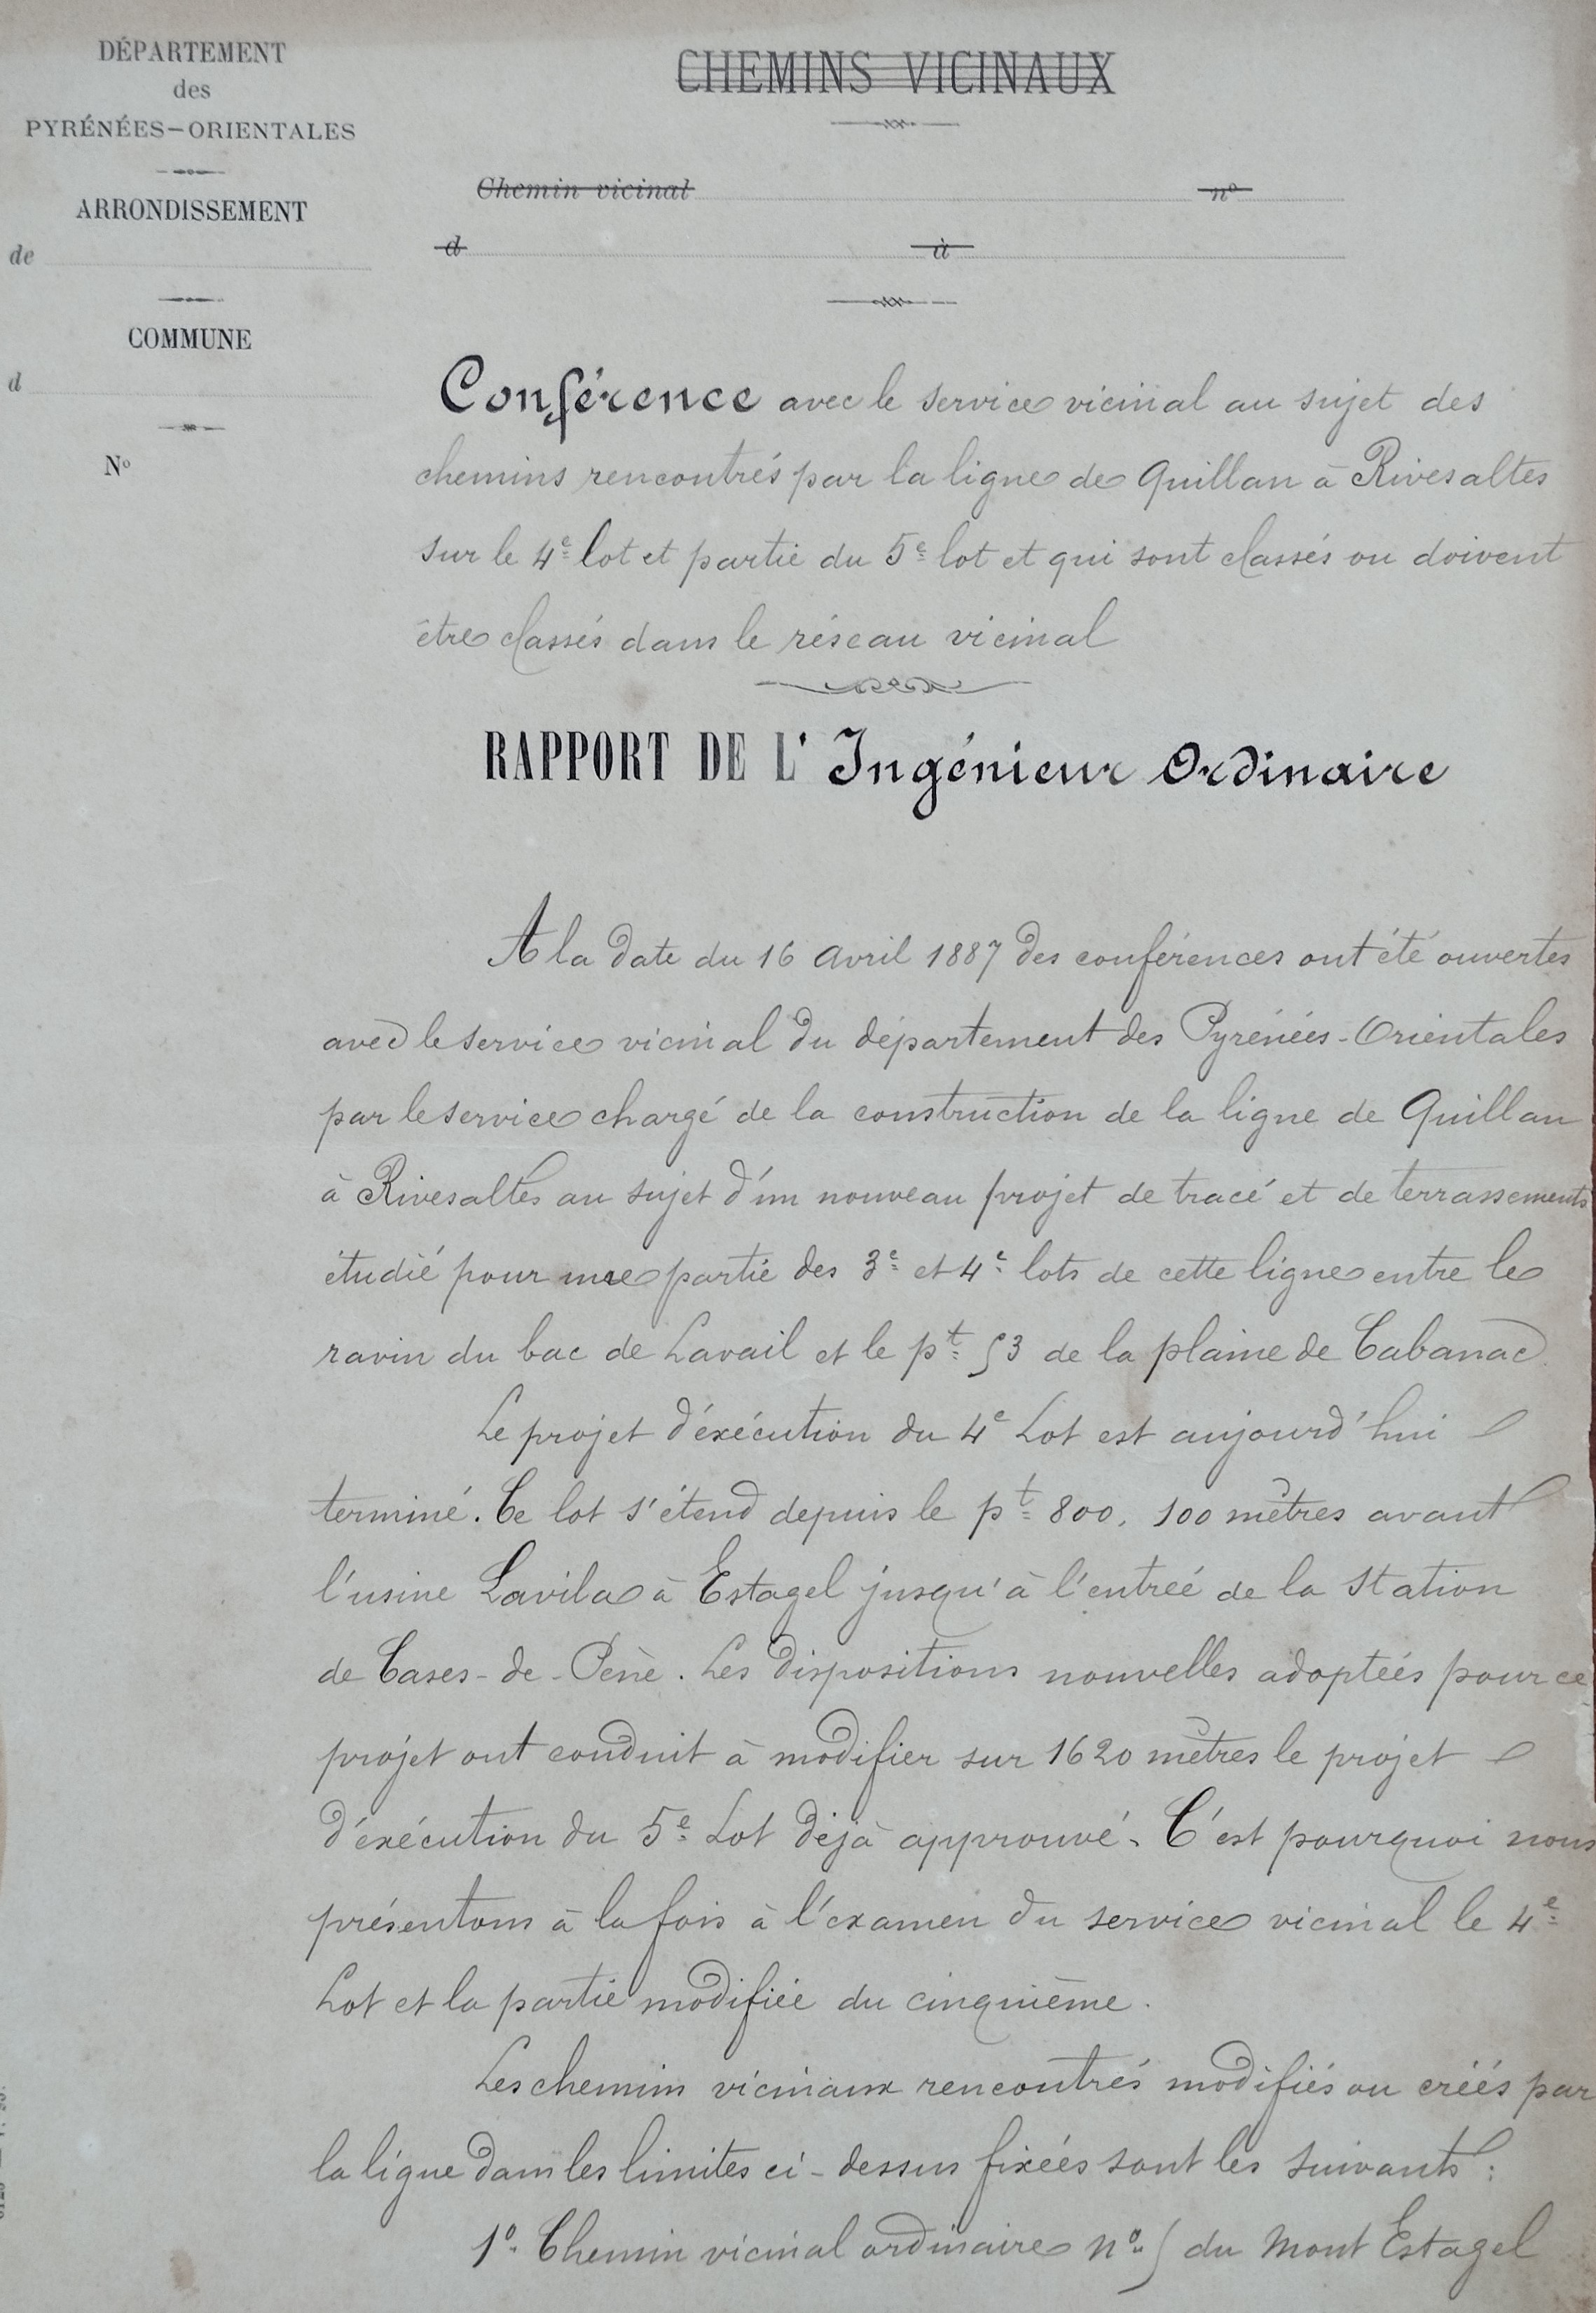 DÉPARTEMENT
des
PYRÉNÉES-ORIENTALES
ARRONDISSEMENT
de
COMMUNE
d
Nº
CHEMINS VICINAUX
Chemin vicinal nº
d à
Conférence avec le service vicinal au sujet des
chemins rencontrés par la ligne de Quillan à Rivesaltes
sur le 4e lot et partie du 5e lot et qui sont classés ou doivent
être classés dans le réseau vicinal
RAPPORT DE L'Ingénieur Ordinaire
A la date du 16 Avril 1887 des conférences ont été ouvertes
avec le service vicinal du département des Pyrénées-Orientales
par le service chargé de la construction de la ligne de Quillan
à Rivesaltes au sujet d'un nouveau projet de tracé et de terrassements
étudié pour une partie des 3e et 4e lots de cette ligne entre le
ravin du bac de Lavail et le pt 53 de la plaine de Cabanac
Le projet d'éxécution du 4e Lot est aujourd'hui
terminé. Ce lot s'étend depuis le pt 800, 100 mètres avant
l'usine Lavila à Estagel jusqu'à l'entrée de la Station
de Cases-de-Pène. Les dispositions nouvelles adoptées pour ce
projet ont conduit à modifier sur 1620 mètres le projet
d'éxécution du 5e Lot déjà approuvé. C'est pourquoi nous
présentons à la fois à l'examen du service vicinal le 4e
Lot et la partie modifiée du cinquième.
Les chemins vicinaux rencontrés modifiés ou créés par
la ligne dans les limites ci-dessus fixées sont les suivants :
1º Chemin vicinal ordinaire nº 5 du Mont Estagel